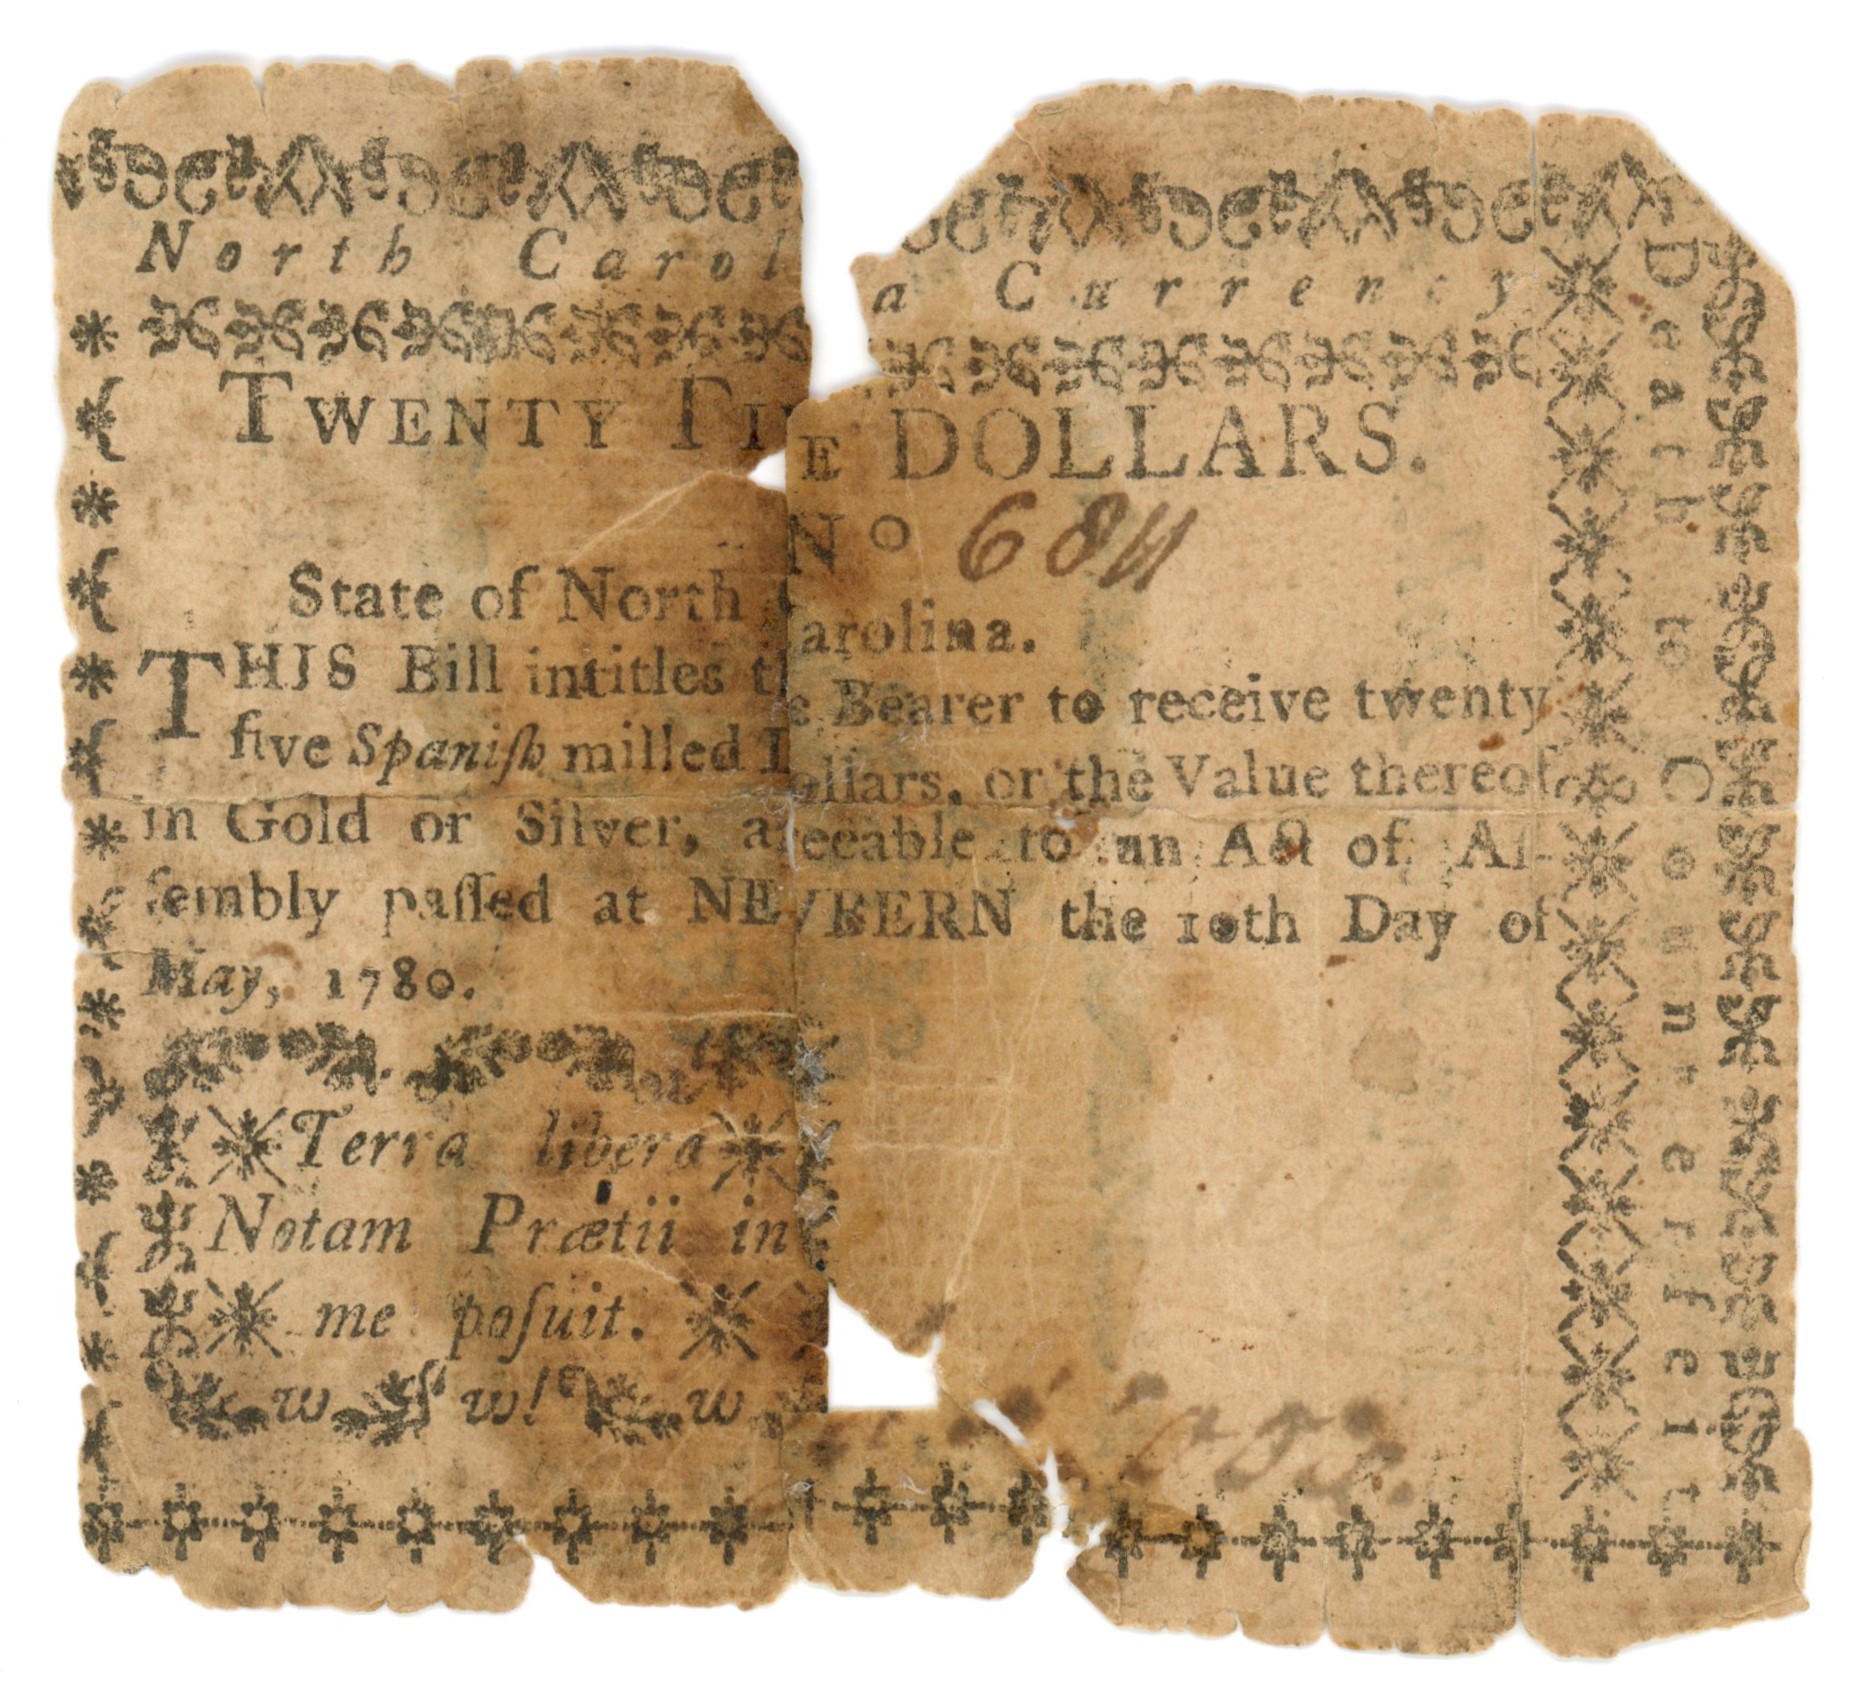 North Carol a Currency
TWENTY FI E DOLLARS.
No 684
State of North Carolina.
THIS Bill intitles the Bearer to receive twenty
five Spaniſh milled Dollars, or the Value thereof
in Gold or Silver, agreeable to an Act of Aſ-
ſembly paſſed at NEWBERN the 10th Day of
May, 1780.
Terra libera
Notam Prætii in
me poſuit.
w w! w
Death to Counterfeit